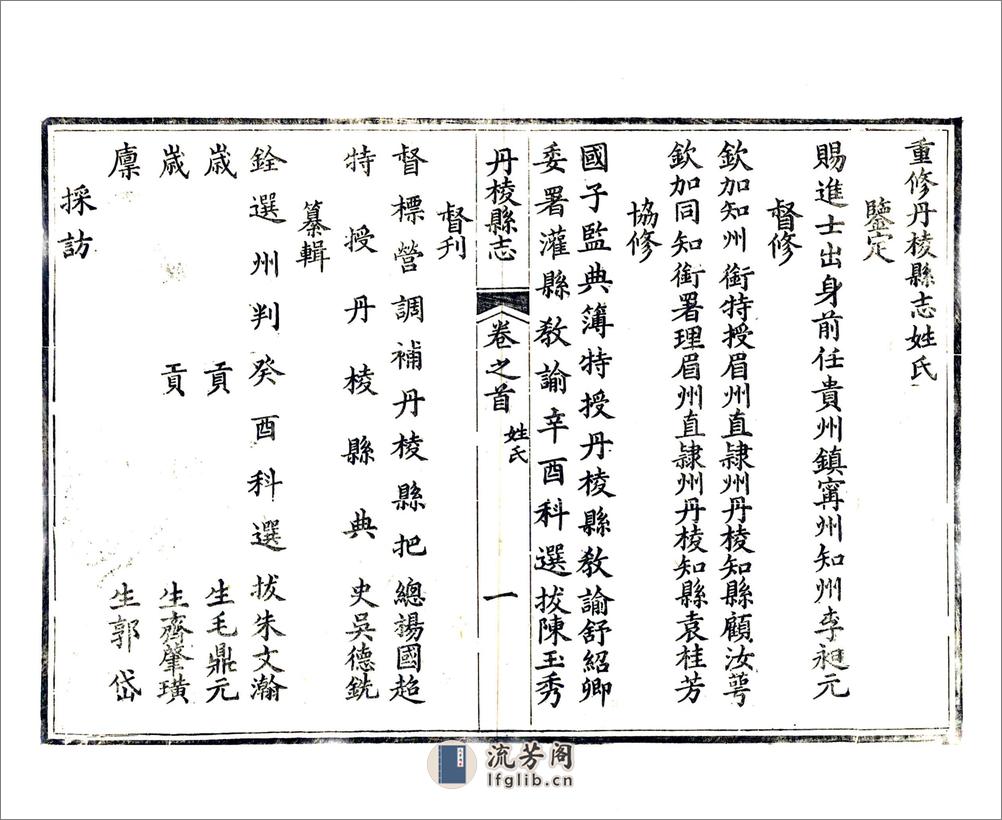 重修丹棱縣志姓氏
鑒定
賜進士出身前任貴州鎮甯州知州李昶元
督修
欽加知州銜特授眉州直隸州丹棱知縣顧汝萼
欽加同知銜署理眉州直隸州丹棱知縣袁桂芳
協修
國子監典簿特授丹棱縣教諭舒紹卿
委署灌縣教諭辛酉科選拔陳玉秀
丹棱縣志 卷之首 姓氏 一
督刋
督標營調補丹棱縣把總揚國超
特授丹棱縣典史吳德銑
纂輯
銓選州判癸酉科選拔朱文瀚
歲貢生毛鼎元
歲貢生齊肇璜
廩生郭岱
採訪
流芳阁
lfglib.cn